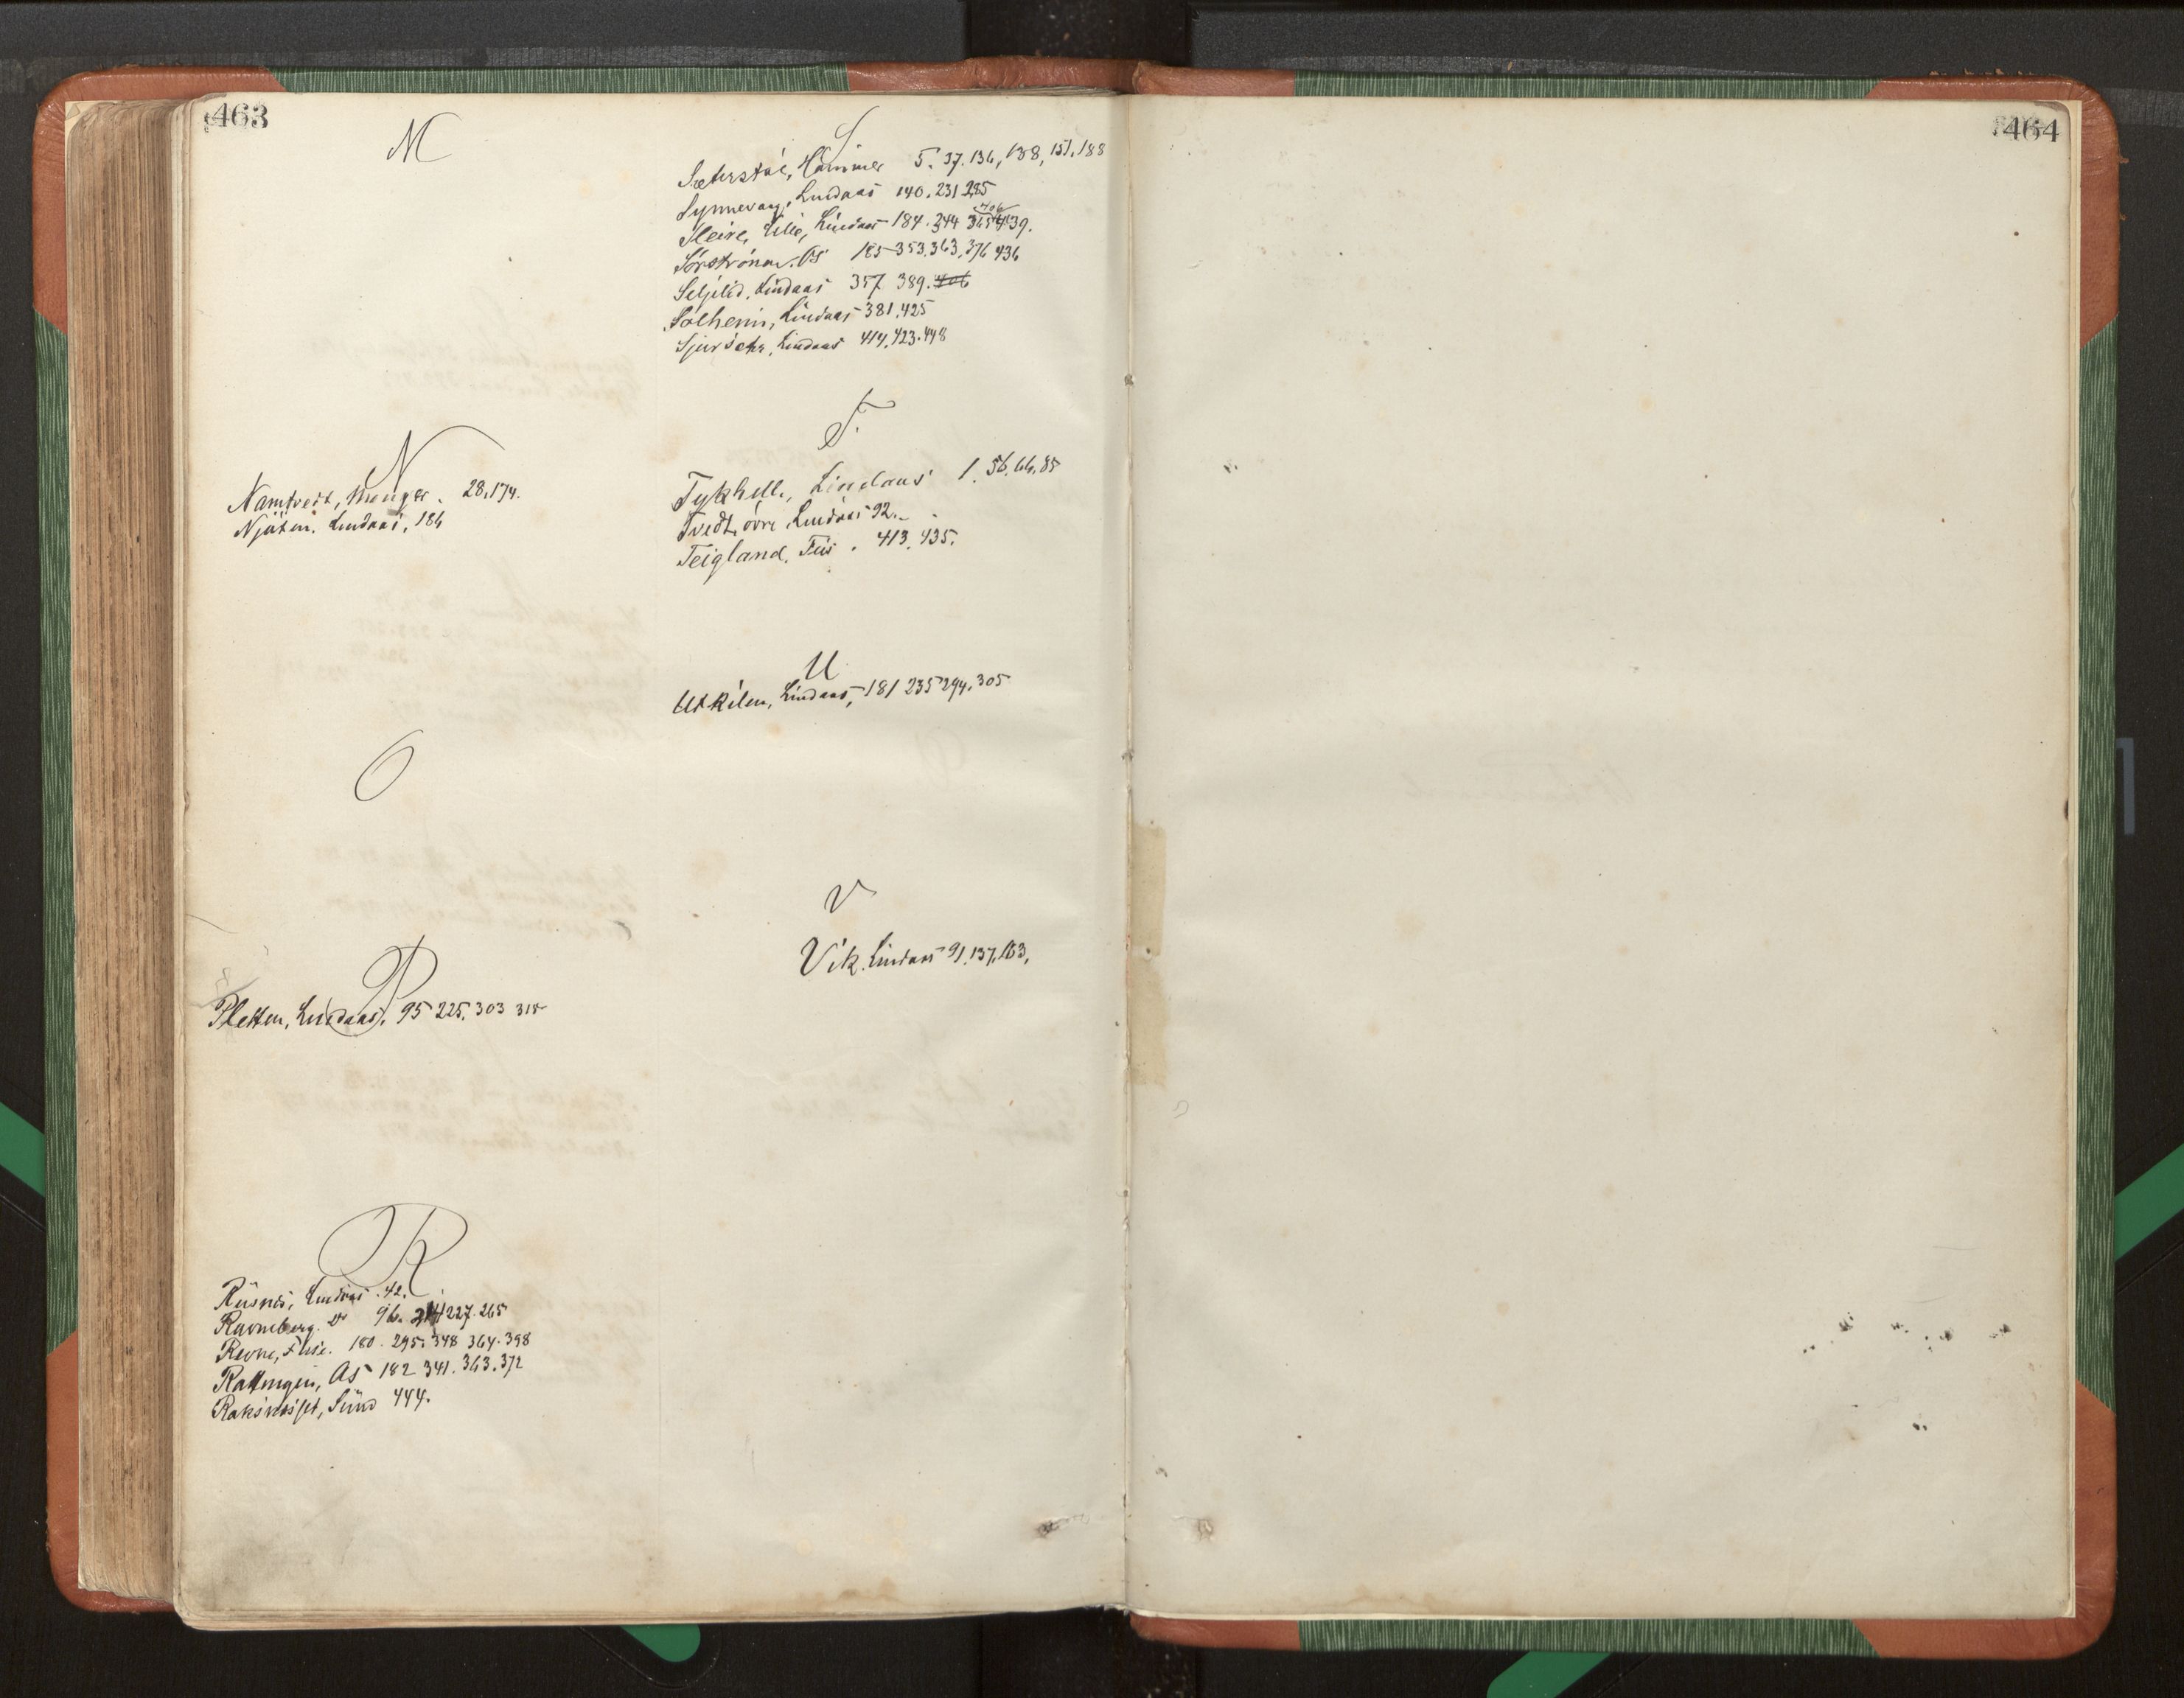 463
M
N
Namtvedt, Manger. 28.174.
Njåten. Lindaas, 186
O
P
Pletten, Lindaas. 95 225. 303 315
R
Risnes, Lindaas. 42.
Ravneberg. do 96. 214 227. 265
Revne, Fuse. 180. 295. 348 364. 398
Os 182 341. 363. 372
Sund 444.
S
Sæterstøl, Hammer 5. 37. 136, 138, 151. 188
Synnevaag, Lindaas 140. 231 285
406
Sleire, lille, Lindaas 184. 244 365 439.
Os 185 353. 363. 376 436
Seljelid. Lindaas 357 389. 406
Solheim, Lindaas 381. 425
Sjursæter, Lindaas 414. 423. 448
T.
Tykhell, Lindaas 1. 56. 66. 85
Tvedt, övre Lindaas 92.
Teigland. Fus. 413. 435.
U
Utkilen, Lindaas, 181 235 294. 305
V
Vik. Lindaas 91. 137. 163.
464